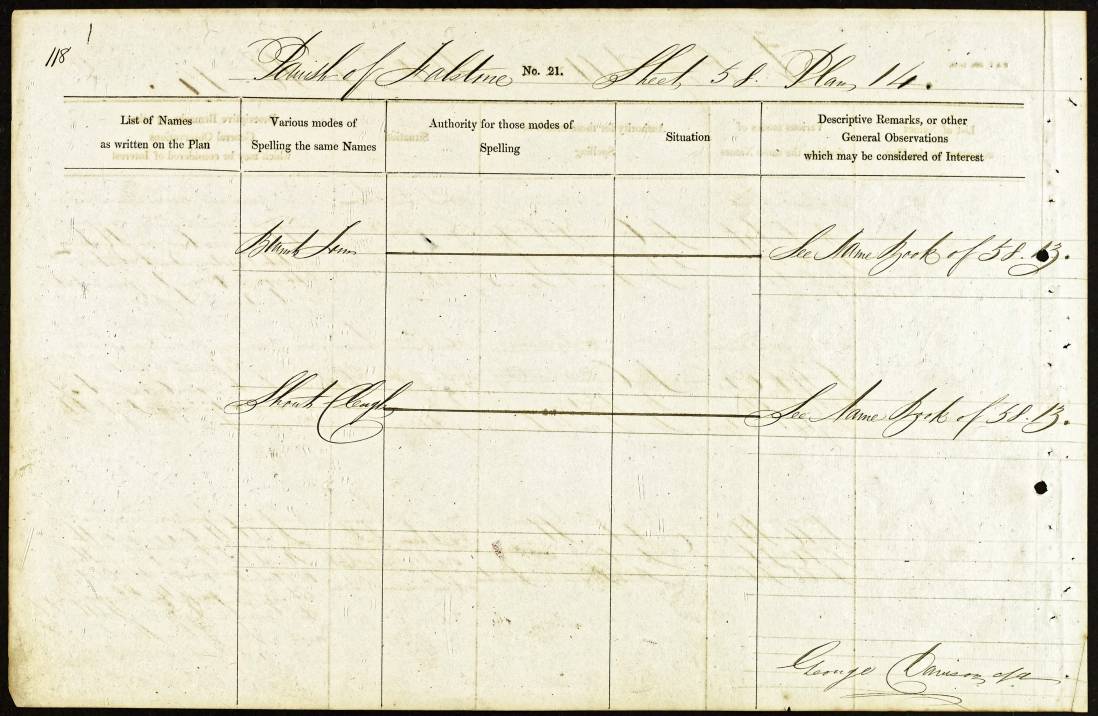 118
Parish of Falstone No. 21. Sheet 58. Plan 14.
List of Names
as written on the Plan
Various modes of
Spelling the same Names
Authority for those modes of
Spelling
Situation
Descriptive Remarks, or other
General Observations
which may be considered of Interest
See Name Book of 58.13.
Cleugh
See Name Book of 58 13.
George Davison